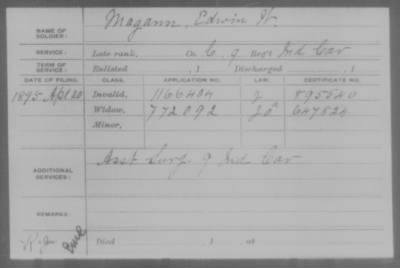 NAME OF SOLDIER: Magann, Edwin W.
SERVICE: Late rank, Co. C, 9 Reg't Ind Cav
TERM OF SERVICE: Enlisted , 1 Discharged , 1
DATE OF FILING. CLASS. APPLICATION NO. LAW. CERTIFICATE NO.
1895 Apl 20 Invalid, 1166404 2 895540
Widow, 772092 647824
Minor,
ADDITIONAL SERVICES: Asst Surg. 9 Ind Cav
REMARKS:
Died , 1 , at